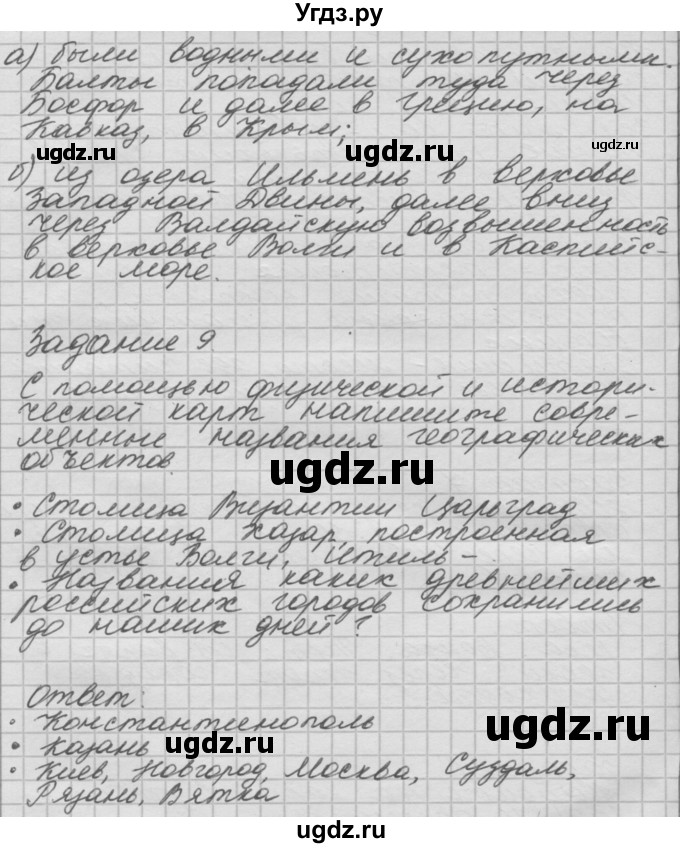 Угдз.ру
а) были водными и сухопутными.
Балты попадали туда через
Босфор и далее в Грецию, на
Кавказ, в Крым;
ugdz.ru
ugdz.ru
б) из озера Ильмень в верховье
Западной Двины, далее вниз
через Валдайскую возвышенность
в верховье Волги и в Каспийс-
кое море.
ugdz.ru
Задание 9
С помощью физической и истори-
ческой карт напишите совре-
менные названия географических
объектов
ugdz.ru
• Столица Византии Царьград
• Столица хазар, построенная
в устье Волги, Итиль –
• Названия каких древнейших
российских городов сохранились
до наших дней?
ugdz.ru
Ответ:
• Константинополь
• Казань
ugdz.ru
ugdz.ru
• Киев, Новгород, Москва, Суздаль,
Рязань, Вятка
ugdz.ru
ugdz.ru